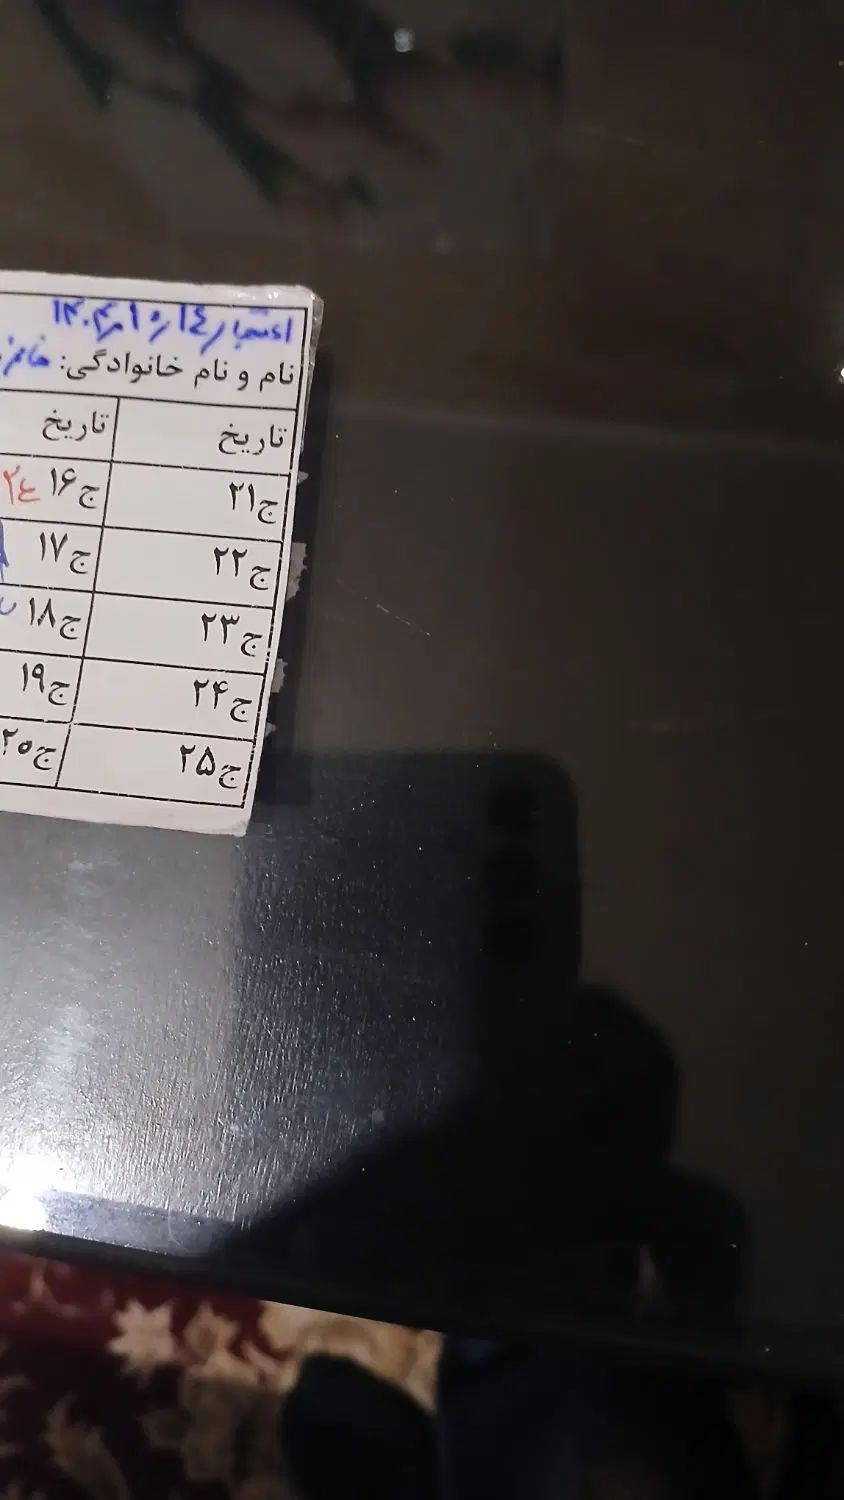 اعتبار
نام و نام خانوادگی:
تاریخ تاریخ
ج۲۱ ج۱۶
ج۲۲ ج۱۷
ج۲۳ ج۱۸
ج۲۴ ج۱۹
ج۲۵ ج۲۰